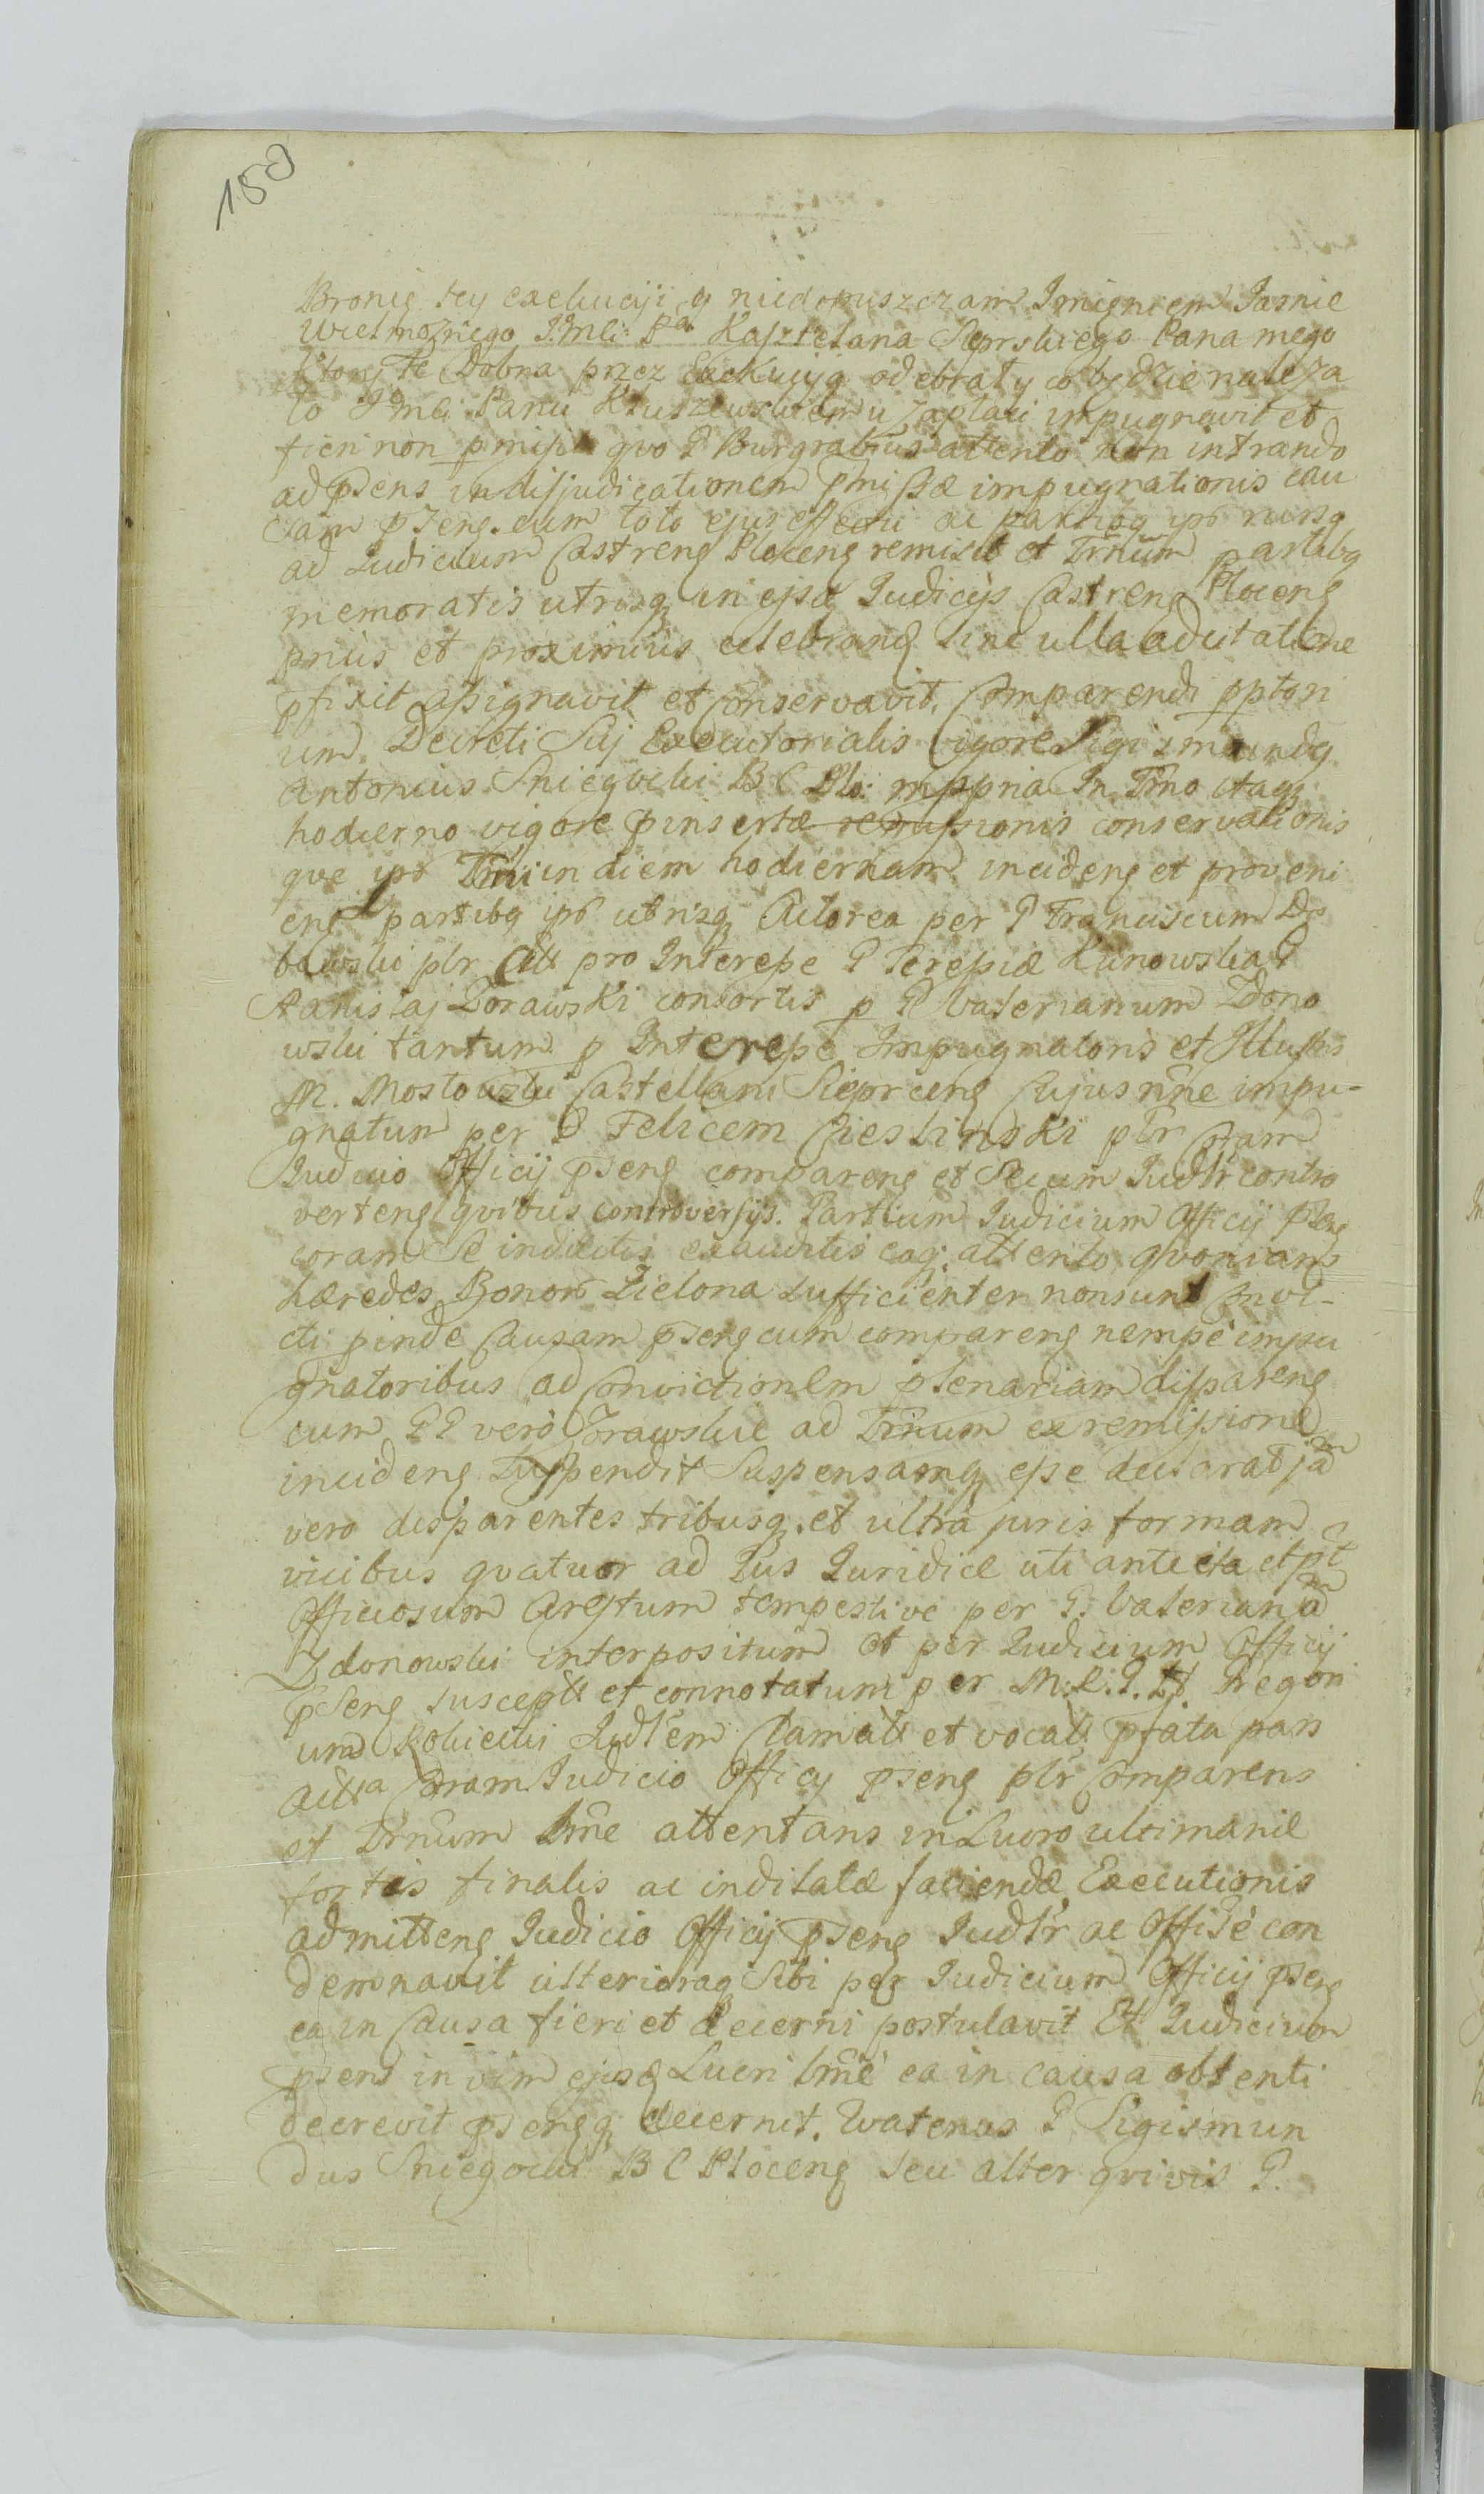 150
Bronię tey exekucyi y niedopuszczam Imieniem Jasnie
Wielmożnego Jmci Pa Kasztelana Sieprskiego Pana mego
ktory te Dobra przez Exekucyją odebrały co będzie należa
ło Jmci Panu Kruszewskiemu zapłaci impugnavit et
fieri non pmisit qvo G Burgrabius attento non intrando
ad pñs in disjudicationem pmissæ impugnationis cau
sam pseng. cum toto ejus effectu ac partibq ipō rursq
ad Judicium Castreng Ploceng remisit et Trnum partibq
memoratis utrisq in ejsd Judicijs Castreng Ploceng
prius et proximius celebrang sine ulla adcitatione
pfixit assignavit et conservavit, Comparendi ppton
um. Decreti Sui Executorialis vigore Sigismundq
Antonius Sniegocki B C Plo: mppria In Trno itaq
hodierno vigore pinsertæ remissionis conservationis
qve ipō Trni in diem hodiernam incideng et proveni
eng partibq ipō utrisq Actorea per G Franciscum Do
bawski plr Att pro Interesse G Teressiæ Kunowska G
Stanislai Zorawski consortis p G Valerianum Zdono
wski tantum p Interesse Impugnatoris et Illustris
M. Mostowski Castellani Sieprceng Cujus nñe impu-
gnatum per G Felicem CiesLinski plr Coram
Judicio Officij pseng compareng et Secum Judlr contro
verteng qvibus controversijs. Partium Judicium Officij pseng
coram Se inductis exauditis eaq. attento qvoniam
hæredes Bonor Zielona sufficienter non sunt Convi-
cti pinde Causam pseng cum compareng nempe impu
gnatoribus ad Convictionem plenariam dispareng
cum GG vero Zorawskie ad Trnum ex remissione
incideng suspendit suspensamq esse declarat jam
vero disparentes tribusq. et ultra juris formam
vicibus qvatuor ad Jus Juridice uti ante cta et pt
Officiosum Arestum tempestive per G. Valerianum
Zdonowski interpositum et per Judicium Officij
pseng suscept et connotatum per M: R: G. H. Gregori
um Robiecki Judlem Clamatt et vocatt pfata pars
actta Coram Judicio Officij pseng plr Comparens
et Trnum Trne attentans in Lucro ultimario
fortis finalis ac indilatæ faciendæ Executionis
admitteng Judicio Officij pseng Judlr ac Offise con
demnavit ulterioraq Sibi per Judicium Officij pseng
ea in Causa fieri et decerni postulavit Et Judicium
psens in vim ejusd Lucri Trne ea in causa obtenti
decrevit psengq decernit. Qvatenus G Sigismun
dus Sniegocki B C Ploceng seu alter qvivis G.